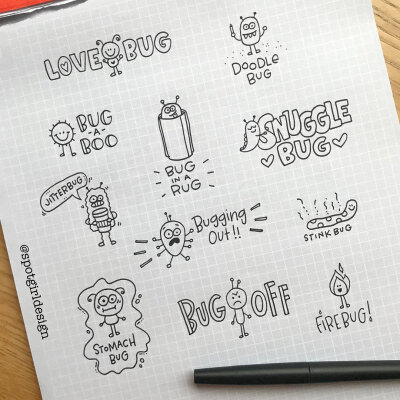 LOVE BUG
DOODLE
BUG
BUG
-A-
BOO
BUG
IN A
RUG
SNUGGLE
BUG
JITTERBUG
Bugging
Out!!
STINK BUG
@spotgirldesign
STOMACH
BUG
BUG OFF
FIREBUG!